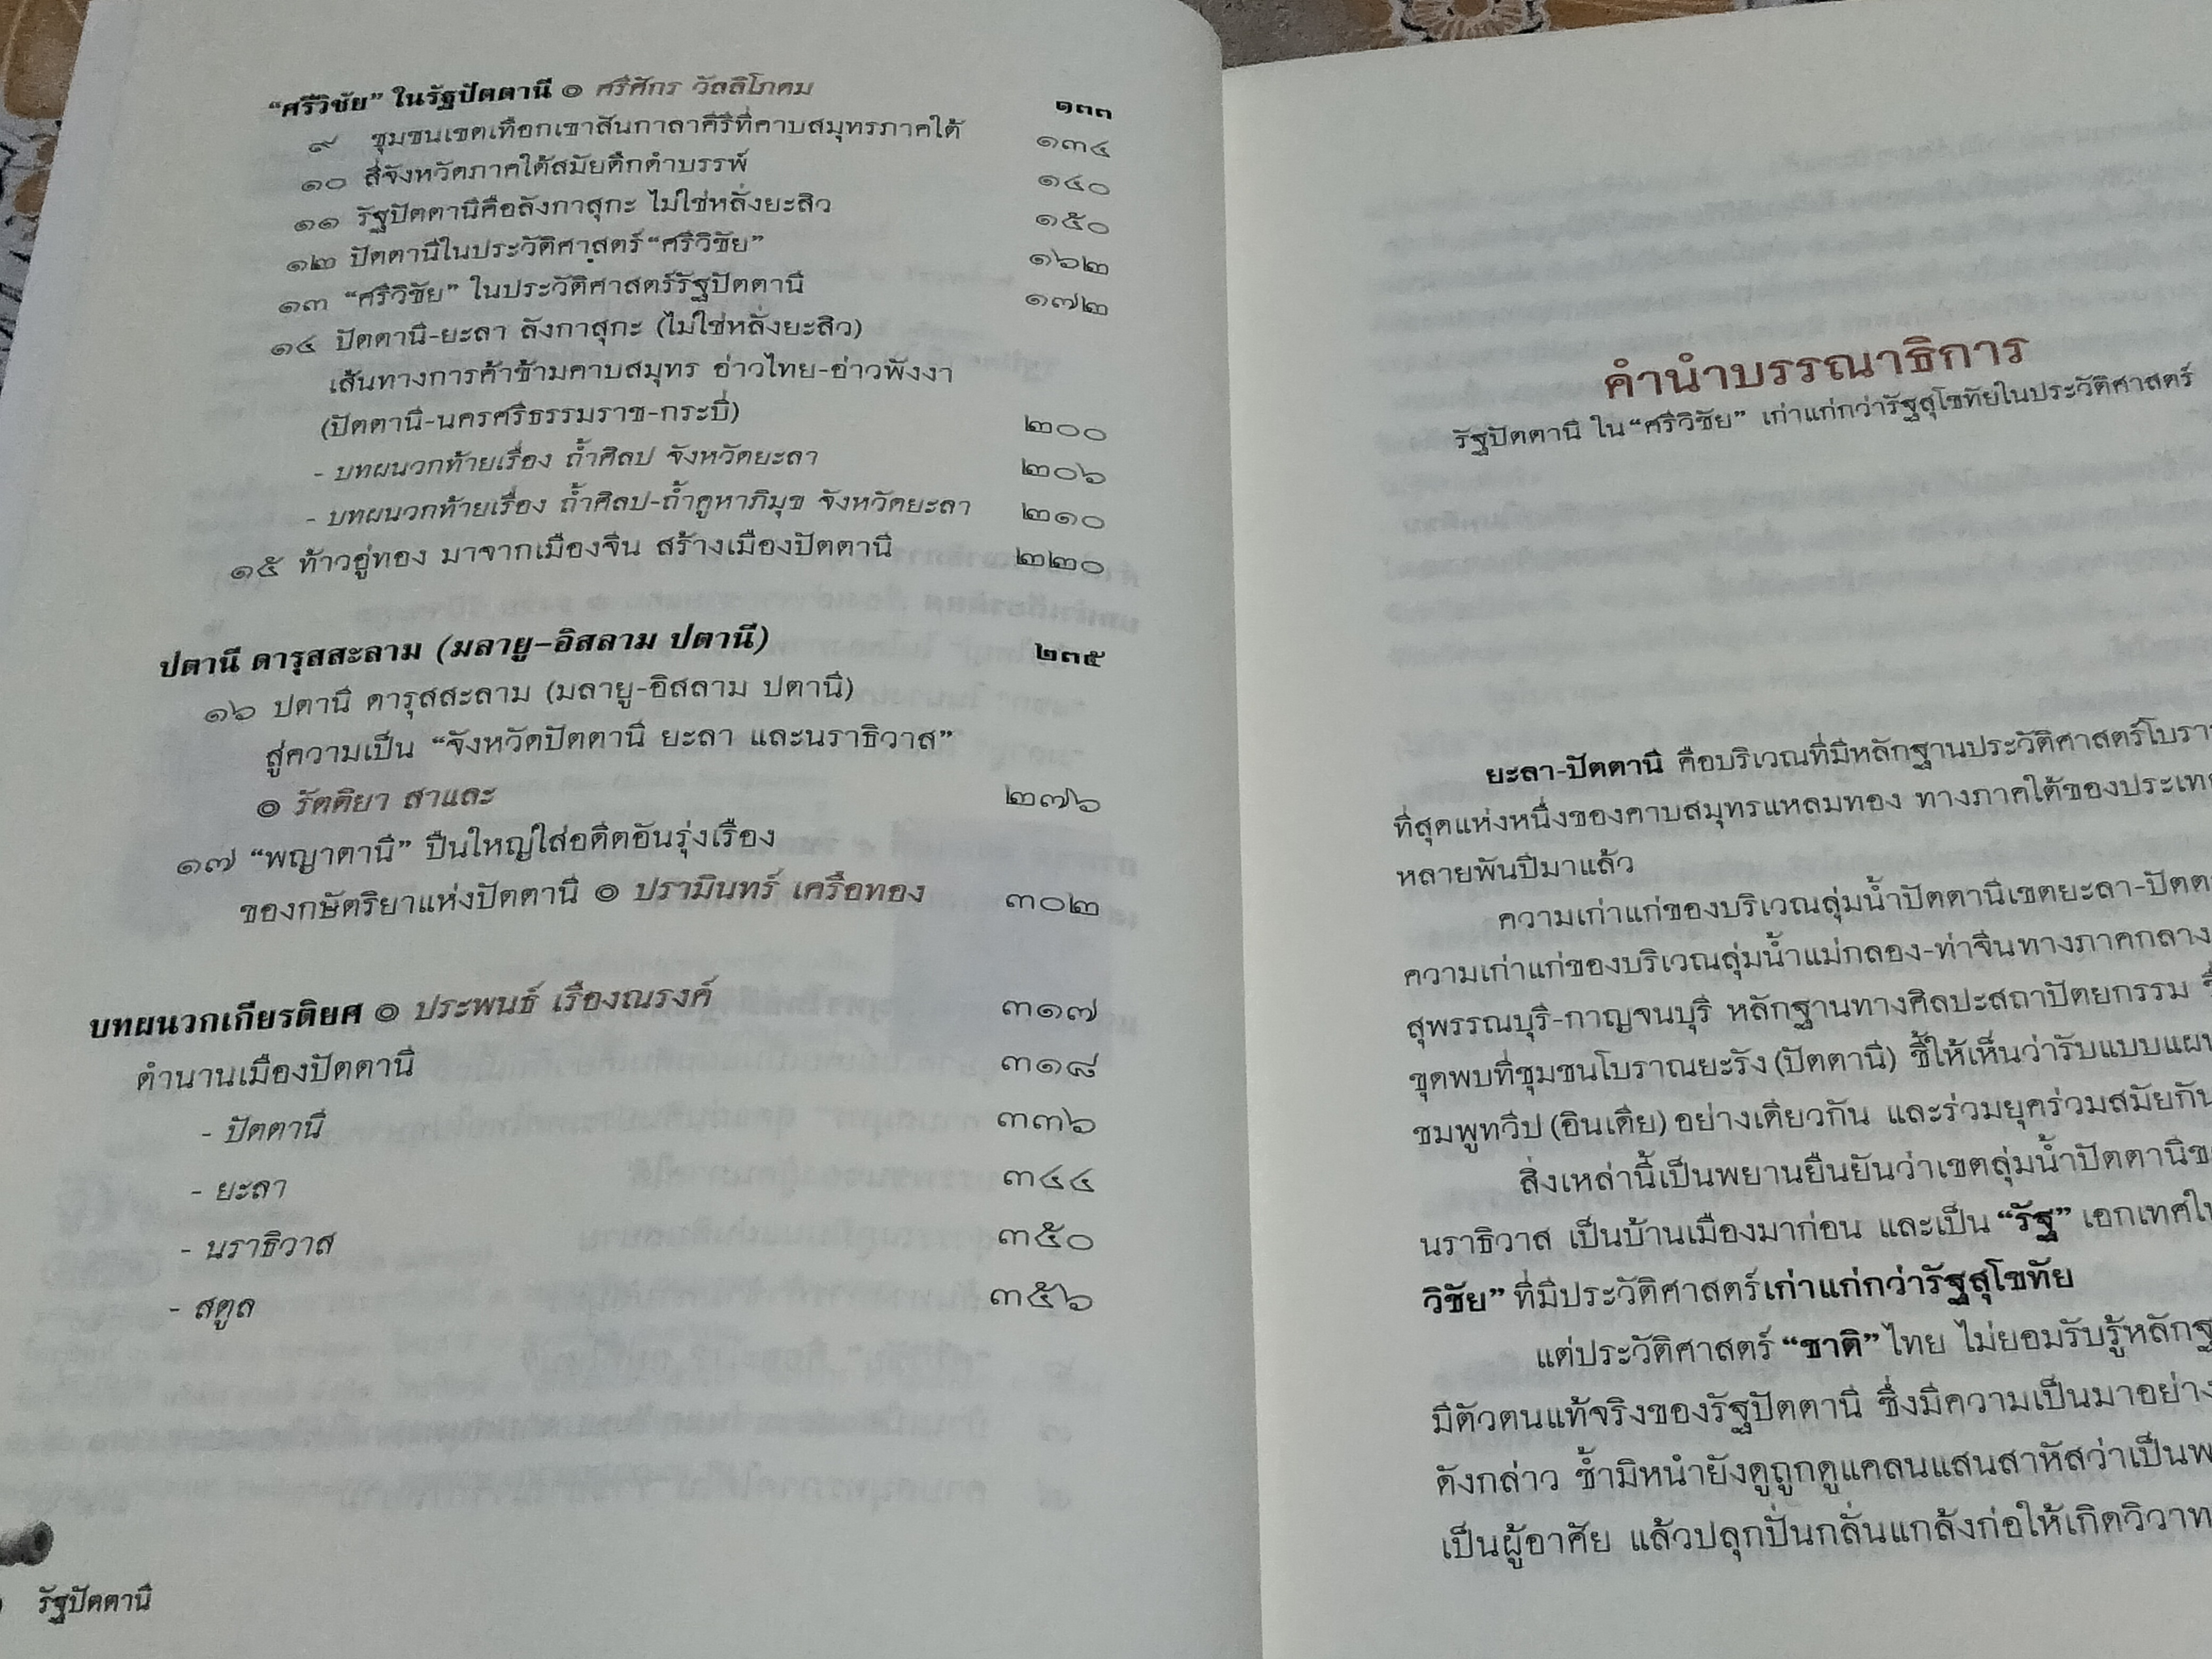 “ศรีวิชัย” ในรัฐปัตตานี ๏ ศรีศักร วัลลิโภดม ๑๓๓
๙ ชุมชนเขตเทือกเขาสันกาลาคีรีที่คาบสมุทรภาคใต้ ๑๓๔
๑๐ สี่จังหวัดภาคใต้สมัยดึกดำบรรพ์ ๑๔๐
๑๑ รัฐปัตตานีคือลังกาสุกะ ไม่ใช่หลั่งยะสิว ๑๕๐
๑๒ ปัตตานีในประวัติศาสตร์“ศรีวิชัย” ๑๖๒
๑๓ “ศรีวิชัย” ในประวัติศาสตร์รัฐปัตตานี ๑๗๒
๑๔ ปัตตานี-ยะลา ลังกาสุกะ (ไม่ใช่หลั่งยะสิว)
เส้นทางการค้าข้ามคาบสมุทร อ่าวไทย-อ่าวพังงา
(ปัตตานี-นครศรีธรรมราช-กระบี่) ๒๐๐
- บทผนวกท้ายเรื่อง ถ้ำศิลป จังหวัดยะลา ๒๐๖
- บทผนวกท้ายเรื่อง ถ้ำศิลป-ถ้ำคูหาภิมุข จังหวัดยะลา ๒๑๐
๑๕ ท้าวอู่ทอง มาจากเมืองจีน สร้างเมืองปัตตานี ๒๒๐
ปตานี ดารุสสะลาม (มลายู-อิสลาม ปตานี) ๒๓๕
๑๖ ปตานี ดารุสสะลาม (มลายู-อิสลาม ปตานี)
สู่ความเป็น “จังหวัดปัตตานี ยะลา และนราธิวาส”
๏ รัตติยา สาและ ๒๗๖
๑๗ “พญาตานี” ปืนใหญ่ใส่อดีตอันรุ่งเรือง
ของกษัตริยาแห่งปัตตานี ๏ ปรามินทร์ เครือทอง ๓๐๒
บทผนวกเกียรติยศ ๏ ประพนธ์ เรืองณรงค์ ๓๑๗
ตำนานเมืองปัตตานี ๓๑๘
- ปัตตานี ๓๓๖
- ยะลา ๓๔๔
- นราธิวาส ๓๕๐
- สตูล ๓๕๖
รัฐปัตตานี
คำนำบรรณาธิการ
รัฐปัตตานี ใน“ศรีวิชัย” เก่าแก่กว่ารัฐสุโขทัยในประวัติศาสตร์
ยะลา-ปัตตานี คือบริเวณที่มีหลักฐานประวัติศาสตร์โบรา
ที่สุดแห่งหนึ่งของคาบสมุทรแหลมทอง ทางภาคใต้ของประเท
หลายพันปีมาแล้ว
ความเก่าแก่ของบริเวณลุ่มน้ำปัตตานีเขตยะลา-ปัตต
ความเก่าแก่ของบริเวณลุ่มน้ำแม่กลอง-ท่าจีนทางภาคกลาง
สุพรรณบุรี-กาญจนบุรี หลักฐานทางศิลปะสถาปัตยกรรม
ขุดพบที่ชุมชนโบราณยะรัง (ปัตตานี) ชี้ให้เห็นว่ารับแบบแผน
ชมพูทวีป (อินเดีย) อย่างเดียวกัน และร่วมยุคร่วมสมัยกัน
สิ่งเหล่านี้เป็นพยานยืนยันว่าเขตลุ่มน้ำปัตตานีข
นราธิวาส เป็นบ้านเมืองมาก่อน และเป็น “รัฐ” เอกเทศใน
วิชัย” ที่มีประวัติศาสตร์เก่าแก่กว่ารัฐสุโขทัย
แต่ประวัติศาสตร์ “ชาติ” ไทย ไม่ยอมรับรู้หลักฐ
มีตัวตนแท้จริงของรัฐปัตตานี ซึ่งมีความเป็นมาอย่าง
ดังกล่าว ซ้ำมิหนำยังดูถูกดูแคลนแสนสาหัสว่าเป็นพ
เป็นผู้อาศัย แล้วปลุกปั่นกลั่นแกล้งก่อให้เกิดวิวาท